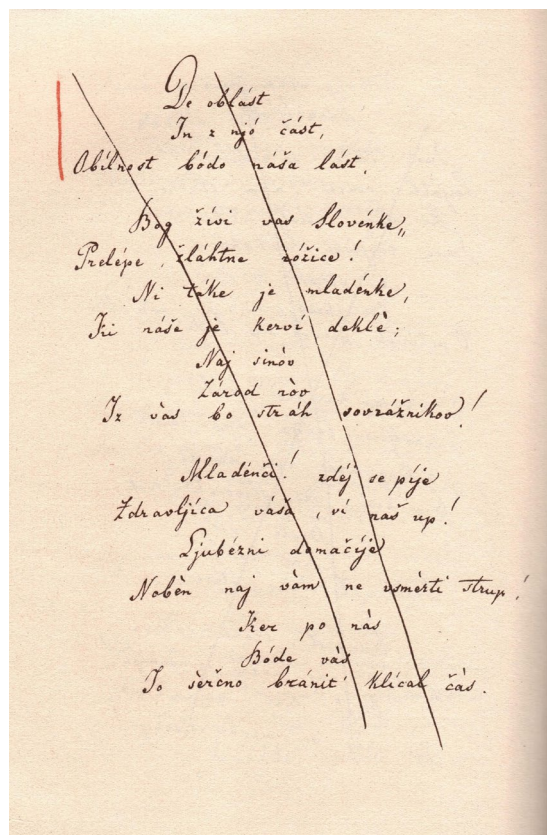 De oblást
In z njó část,
Obílnost bódo náša lást.
Bog žívi vas Slovénke,,
Prelépe, žláhtne róžice!
Ni táke je mladénke,
Ki náše je kerví deklè;
Naj sinòv
Zárod nòv
Iz vàs bo stráh sovrážnikov!
Mladénči! zdéj se píje
Zdravljíca váša, ví naš up!
Ljubézni domačíje
Nobèn naj vàm ne vsmèrti strup!
Ker po nàs
Bóde vàs
Jo sèrčno bránit' klícal čàs.